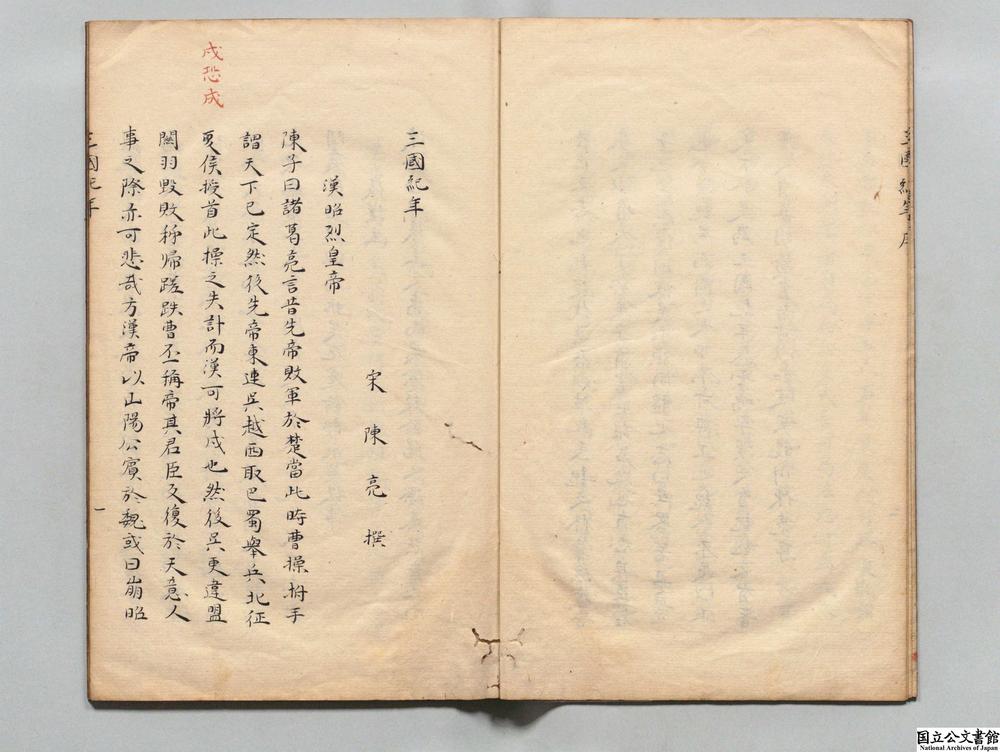 三國紀年
宋陳亮撰
漢昭烈皇帝
陳子曰諸葛亮言昔先帝敗軍於楚當此時曹操拊手
謂天下已定然後先帝東連吳越西取巴蜀舉兵北征
夏侯授首此操之失計而漢可將戍也然後吳更違盟
關羽毀敗秭歸蹉跌曹丕稱帝其君臣反復於天意人
事之際亦可悲哉方漢帝以山陽公賓於魏或曰崩昭
戍恐成
三國紀年
一
国立公文書館
National Archives of Japan